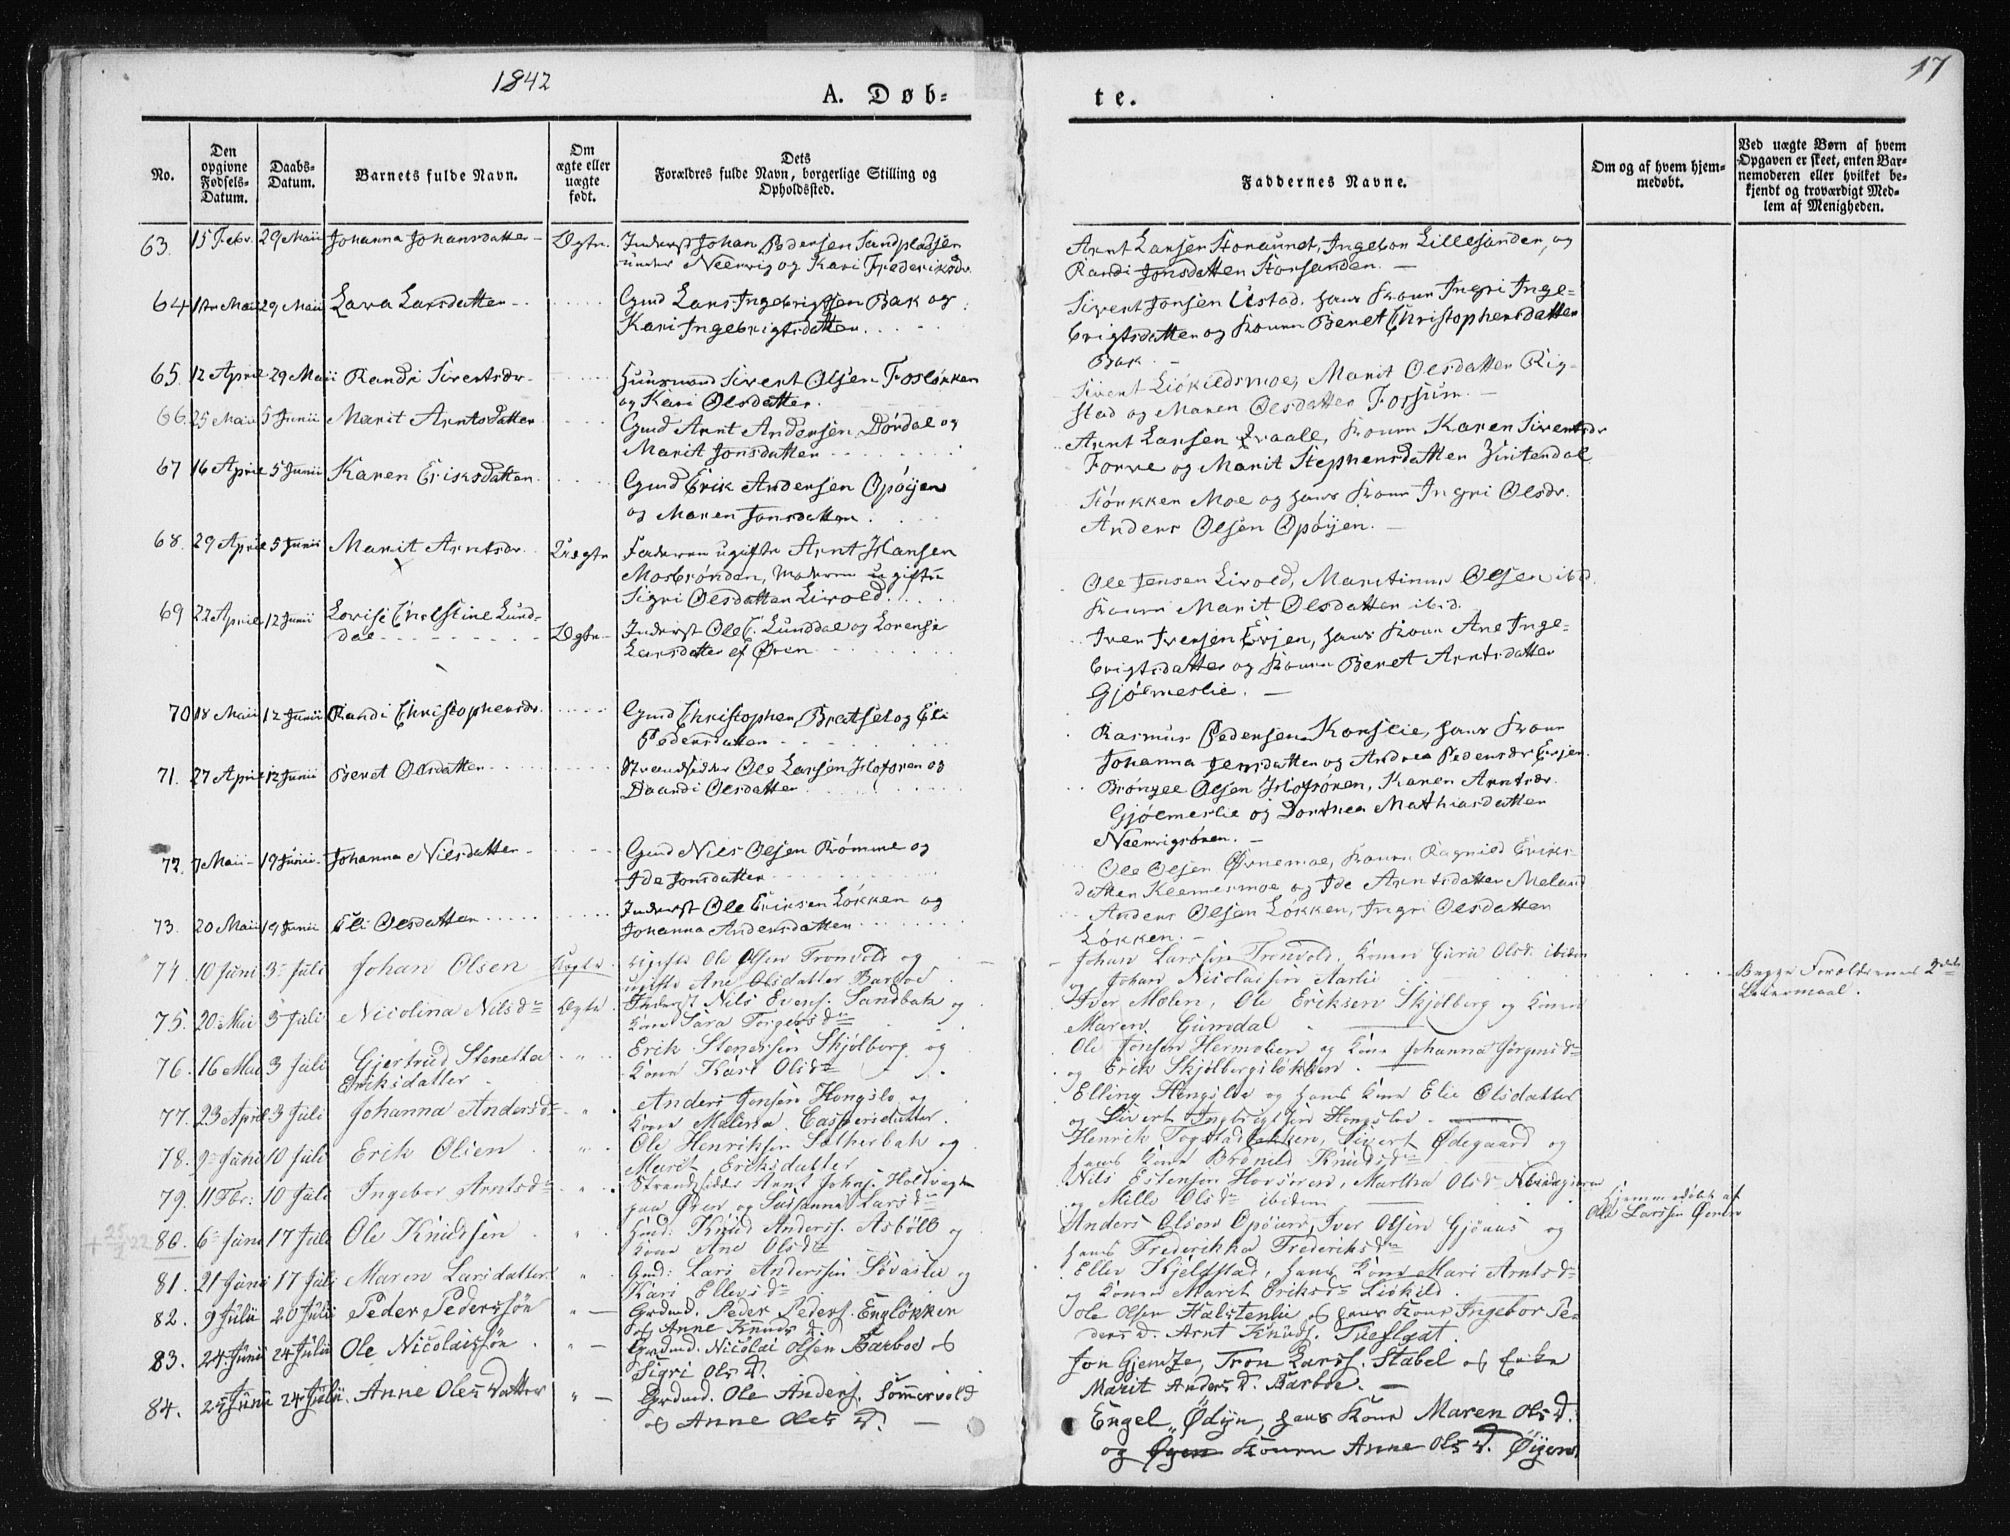 1842
17
A. Døb-
te.
No.
Den opgivne Fødsels-Datum.
Daabs-Datum.
Barnets fulde Navn.
Om ægte eller uægte født.
Dets Forældres fulde Navn, borgerlige Stilling og Opholdssted.
Faddernes Navne.
Om og af hvem hjemmedøbt.
Ved uægte Børn af hvem Opgaven er skeet, enten Barnemoderen eller hvilket bekjendt og troværdigt Medlem af Menigheden.
63. 15 Febr. 29 Maii Johanna Johansdatter Ægte. Inderst Johan Pedersen Sandpladsen
under Neervig og Kari Frederiksdr
Arnt Larsen Storaunet, Ingebor Lillesanden, og
Randi Jonsdatter Storsanden.
64 1ste Maii 29 Maii Lava Larsdatter Gmd Lars Ingebrigtsen Bak og
Kari Ingebrigtsdatter
Sivert Jonsen Ustad, hans Kone Ingri Inge-
brigtsdatter og Konen Beret Christophersdatter
Bak.
65. 12 April 29 Maii Randi Sivertsdr. Huusmand Sivert Olsen Fosløkken
og Kari Olsdatter.
Sivert Liøkildsmoe, Marit Olsdatter Rig-
stad og Maren Olsdatter Fossum.
66. 25 Maii 5 Junii Marit Arntsdatter Gmd Arnt Andersen Dørdal og
Marit Jonsdatter
Arnt Larsen Kvaale, Konen Karen Sivertsdr
Forve og Marit Stephensdatter
67 16 April 5 Junii Karen Eriksdatter Gmd Erik Andersen Opøyen
og Maren Jonsdatter.
Størkken Moe og hans Kone Ingri Olsdr.
Anders Olsen Opøyen.
68. 29 April 5 Junii Marit Arntsdr. Uægte Faderen ugifte Arnt Hansen
Mosbrønden, Moderen ugifte
Sigri Olsdatter Livold
Ole Jensen Livold, Martinus Olsen ibid.
Konen Marit Olsdatter ibid.
69 22 April 12 Junii Lovise Christine Lund-
dal Ægte Inderst Ole C. Lunddal og Lorense
Larsdatter af Øren
Iver Iversen Evjen, hans Kone Ane Inge-
brigtsdatter og Konen Beret Arntsdatter
Gjølmeslie.
70 18 Maii 12 Junii Randi Christophersdr. Gmd Christopher Bratset og Eli
Pedersdatter
Rasmus Pedersen Korslie, hans Kone
Johanna Jensdatter og Andrea Pedersdr Evjen
71. 27 April 12 Junii Beret Olsdatter Strandsidder Ole Larsen Hofsøren og
Daardi Olsdatter
Brøngel Olsen Hofsøren, Karen Arntsdr.
Gjølmeslie og Dorthea Mathiasdatter
Neervigsøren.
72. 7 Maii 19 Junii Johanna Nilsdatter Gmd Nils Olsen Rømme og
Ide Jonsdatter
Ole Olsen Ørnemoe, Konen Ragnild Eriks-
datter Kleemesmoe og Ide Arntsdatter Meland
73. 20 Maii 19 Junii Eli Olsdatter Inderst Ole Eriksen Løkken og
Johanna Andersdatter
Anders Olsen Løkken, Ingri Olsdatter
Løkken.
74 10 Juni 3 Juli Johan Olsen Uægte ugifte Ole Olsen Tronvold og
ugifte Ane Olsdatter Barboe
Johan Larssen Tronvold, Konen Guru Olsd. ibidem
og Johan Nicolaissen Aarlie
Begge Forældrenes 2det
Leiermaal.
75. 20 Mai 3 Juli Nicolina Nilsdr Ægte Inderst Nils Evens. Sandbak og
Kone Sara Torgersdr
Iver Molen, Ole Eriksen Skjølberg og Konen
Maren Gumdal
76. 16 Mai 3 Juli Gjertrud Stenetta
Eriksdatter Erik Stenersen Skjølberg og
Kone Kari Olsdr
Ole Jonsen Hermolien og Kone Johanna Jørgensdr
og Erik Skjølbergsløkken.
77. 23 April 3 Juli Johanna Andersdr Anders Jonsen Hongslo og
Kone Malena Caspersdatter.
Elling Hongslo og hans Kone Elie Olsdatter
og Sivert Ingbrigtsen Hongslo.
78. 9 Juni 10 Juli Erik Olsen Ole Henriksen Sætherbak og
Marit Eriksdatter
Henrik Togstadløkken, Sivert Ødegaard og
hans Kone Brønild Knudsdr
79. 11 Fbr: 10 Juli Ingebor Arntsdr Strandsidder Arnt Johns. Holtvigen
paa Øren og Susanna Larsdr
Nils Estensen Hovsøren, Martha Olsdr
og Mille Olsdr ibidem
Hjemmedøbt af
Ole Larssen Øren
80. 6 Juni 17 Juli Ole Knudsen Gmd: Knud Anderss. Asbøll og
Kone Ane Olsdr
Anders Olsen Opøien, Iver Olsen Gjønnes og
hans Frederikka Frederiksdr
81. 21 Juni 17 Juli Maren Larsdatter Gmd: Lars Anderssen Søvaslie og
Kari Ellevsdr
Ellev Kjeldstad, hans Kone Mari Arntsdr
og Konen Marit Eriksdr Liøkild.
82. 9 Julii 20 Julii Peder Pederssøn Grdmd. Peder Peders. Engløkken
og Anne Knuds D.
Ole Olsen Halstenlie og hans Kone Ingebor Pe-
ders D. Arnt Knuds.
83. 24. Junii 24 Julii Ole Nicolaissøn Grdmd. Nicolai Olsen Barboe og
Sigri Ols D.
Jon Gjemse, Tron Larss. Stabel og
Marit Anders D. Barboe.
84. 25 Junii 24 Julii. Anne Oles Datter Grdmd. Ole Anders. Sommervold
og Anne Oles D.
Engel Ødiyn, hans Kone Maren Ols D.
og Øyen Konen Anne Ols D. Øiyen.